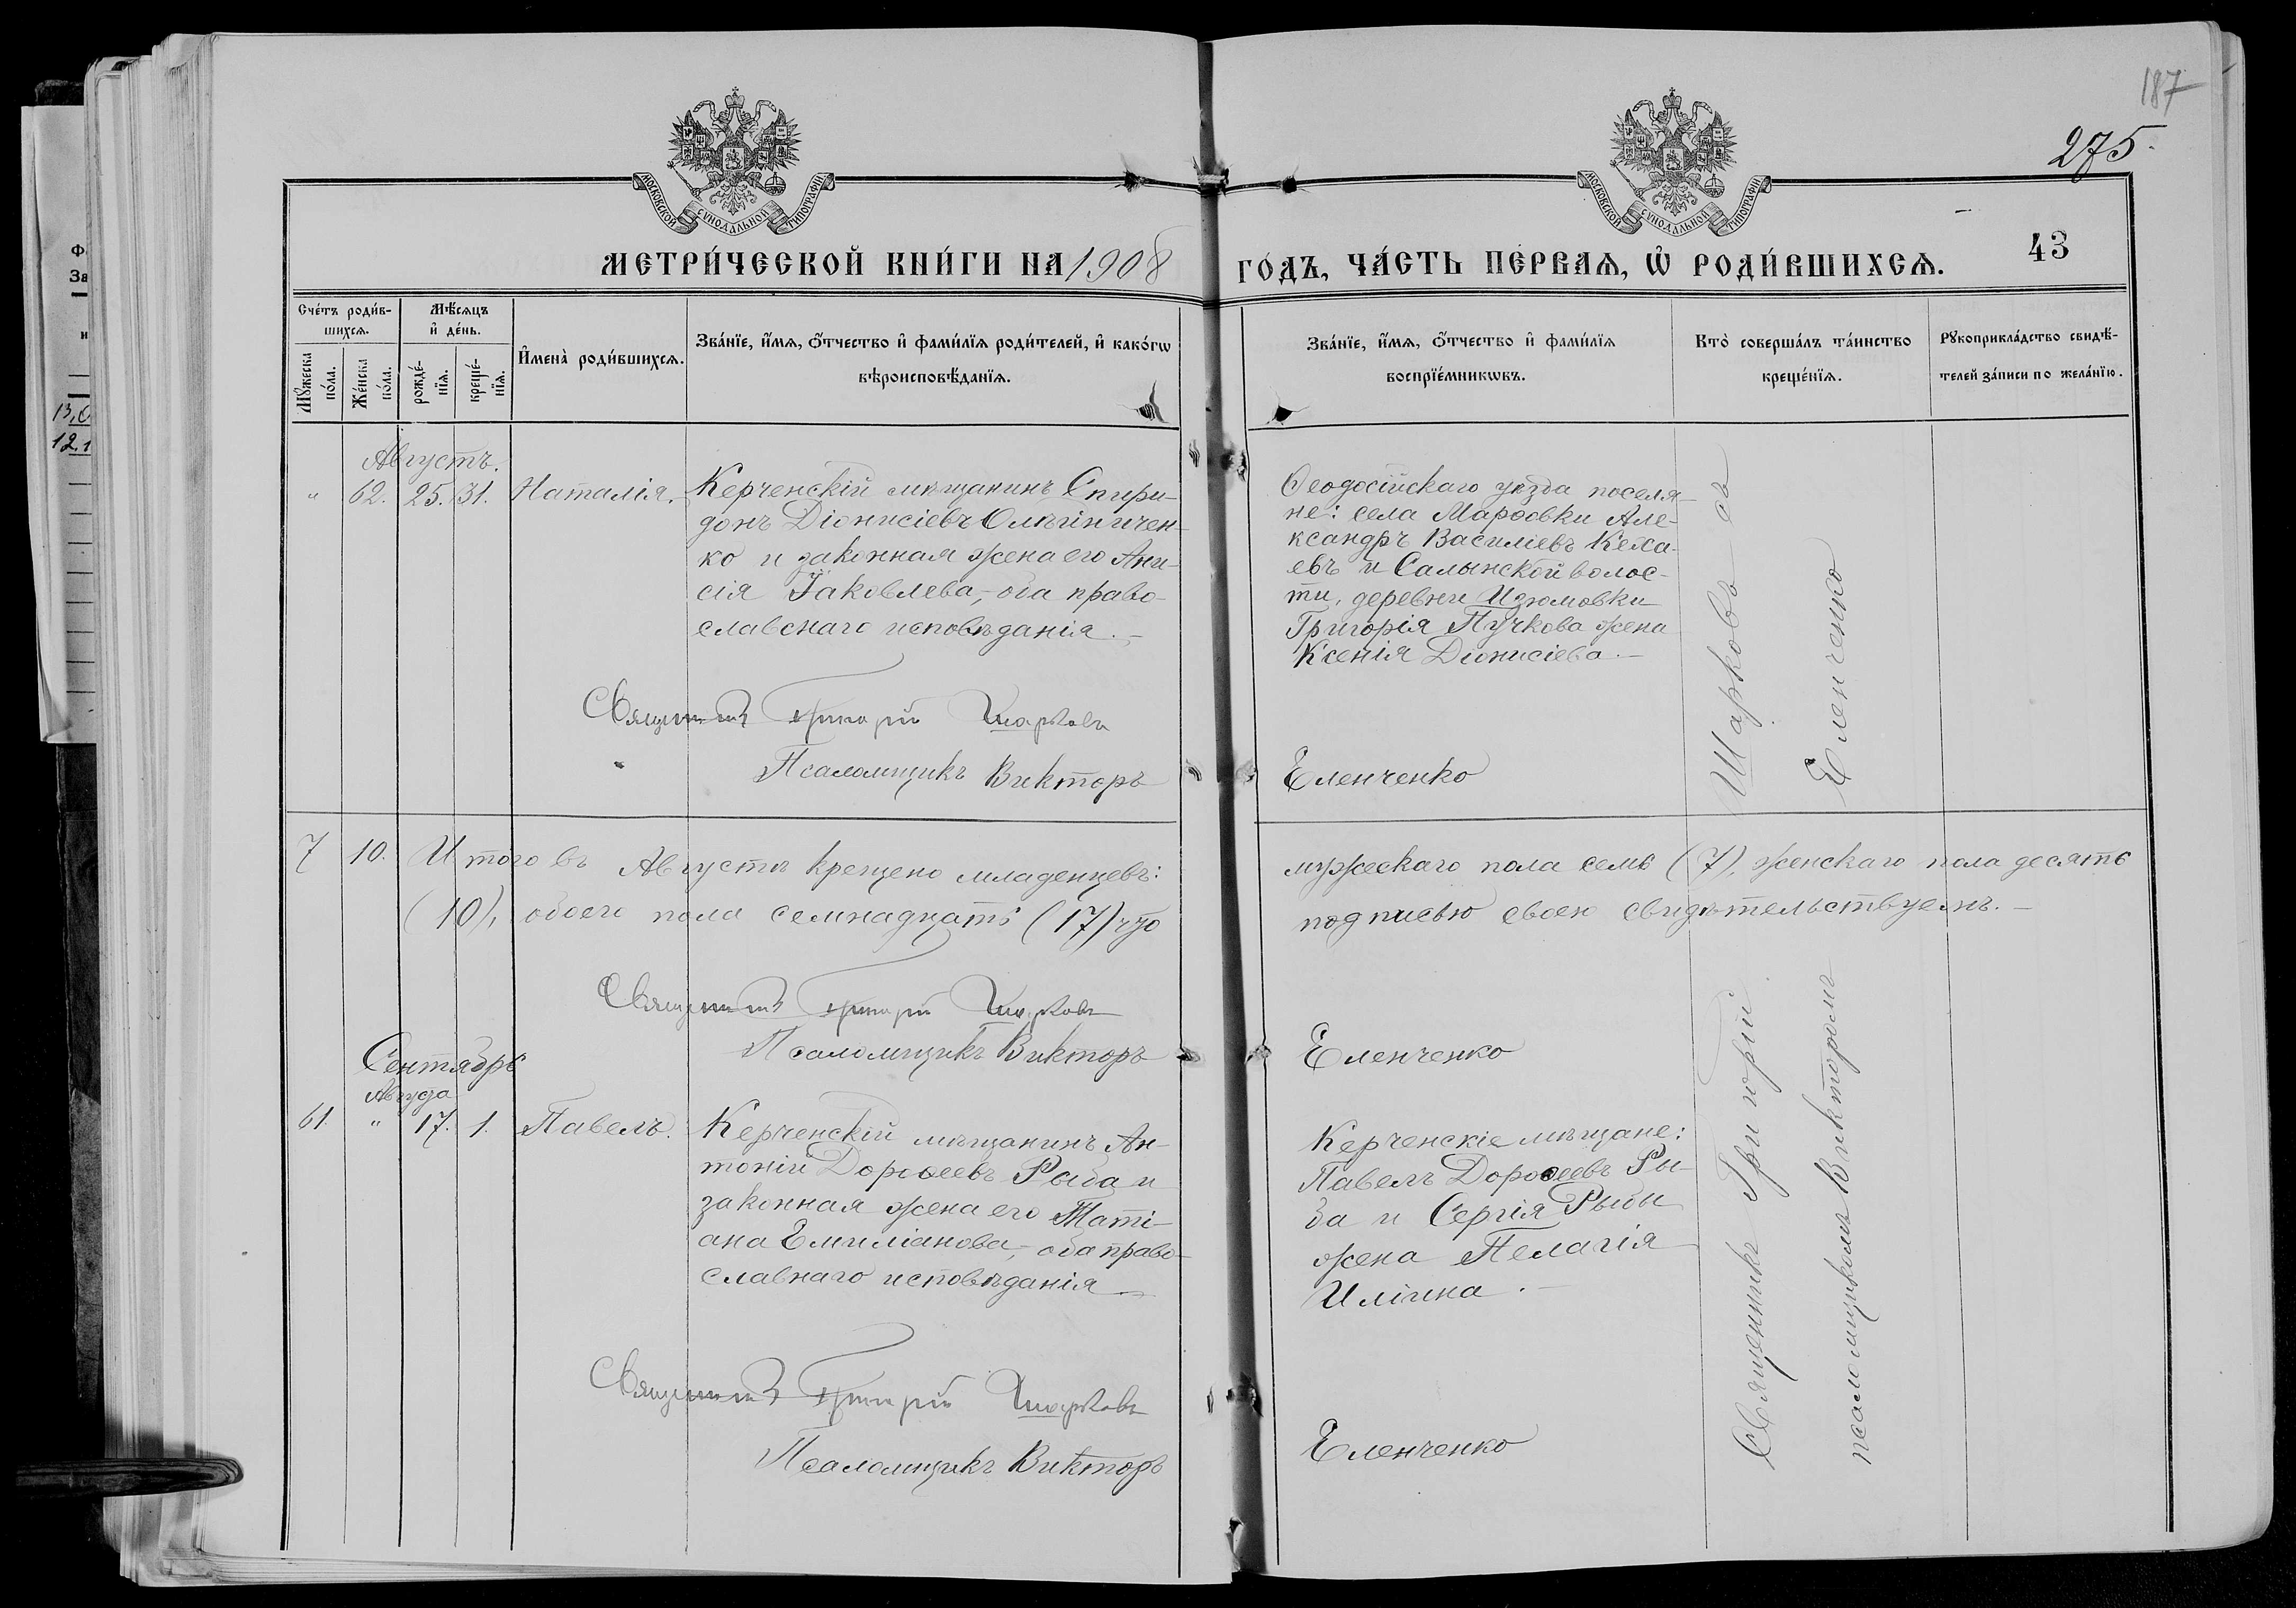 187
275.
МОСКОВСКОЙ СѴНОДАЛЬНОЙ ТИПОГРАФІИ
МОСКОВСКОЙ СѴНОДАЛЬНОЙ ТИПОГРАФІИ
МЕТРИ́ЧЕСКОЙ КНИ́ГИ НА 1908
ГО́ДЪ, ЧА́СТЬ ПЕ́РВАѦ, Ѡ҆ РОДИ́ВШИХСѦ.
43
Сче́тъ роди́в-
шихсѧ.
Мꙋ́жеска
по́ла.
Же́нска
по́ла.
Мѣ́сѧцъ
и҆ де́нь.
рожде́-
нїѧ.
креще́-
нїѧ.
И҆мена̀ роди́вшихсѧ.
Зва́нїе, и҆́мѧ, ѻ҆́тчество и҆ фами́лїѧ роди́телей, и҆ како́гѡ
вѣроисповѣ́данїѧ.
Зва́нїе, и҆́мѧ, ѻ҆́тчество и҆ фами́лїѧ
воспрїе́мникѡвъ.
Кто̀ соверша́лъ та́инство
креще́нїѧ.
Рꙋкоприкла́дство свидѣ́-
телей за́писи по жела́нїю.
Августъ.
" 62. 25. 31. Наталія.
Керченскій мѣщанинъ Спири-
донъ Діонисіевъ Олѣйничен-
ко и законная жена его Ани-
сія Іаковлева,- оба право-
славнаго исповѣданія.-
Священникъ Григорій Шарковъ
Псаломщикъ Викторъ
Ѳеодосійскаго уѣзда поселя-
не: села Марѳовки Але-
ксандръ Василіевъ Кеха-
евъ и Салынской волос-
ти, деревни Изюмовки
Григорія Пучкова жена
Ксенія Діонисіева.-
Еленченко
7 10. Итого въ Августѣ крещено младенцевъ:
(10), обоего пола семнадцать (17) что
мужескаго пола семь (7), женскаго пола десять
подписью своею свидѣтельствуемъ.-
Священникъ Григорій Шарковъ
Псаломщикъ Викторъ
Еленченко
Сентябрь
Августа
61. " 17. 1. Павелъ.
Керченскій мѣщанинъ Ан-
тоній Дороѳеевъ Рыба и
законная жена его Таті-
ана Емиліанова,- оба право-
славнаго исповѣданія
Священникъ Григорій Шарковъ
Псаломщикъ Викторъ
Керченскіе мѣщане:
Павелъ Дороѳеевъ Ры-
ба и Сергія Рыбы
жена Пелагія
Иліина.-
Еленченко
Священникъ Григорій Шарковъ съ
псаломщикомъ Викторомъ Еленченко